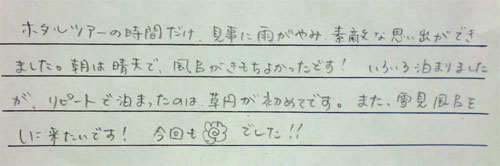 ホタルツアーの時間だけ、見事に雨がやみ、素敵な思い出ができ
ました。朝は晴天で、風呂がきもちよかったです！ いろいろ泊まりました
が、リピートで泊まったのは、草円が初めてです。また、雪見風呂を
しに来たいです！ 今回も でした！！